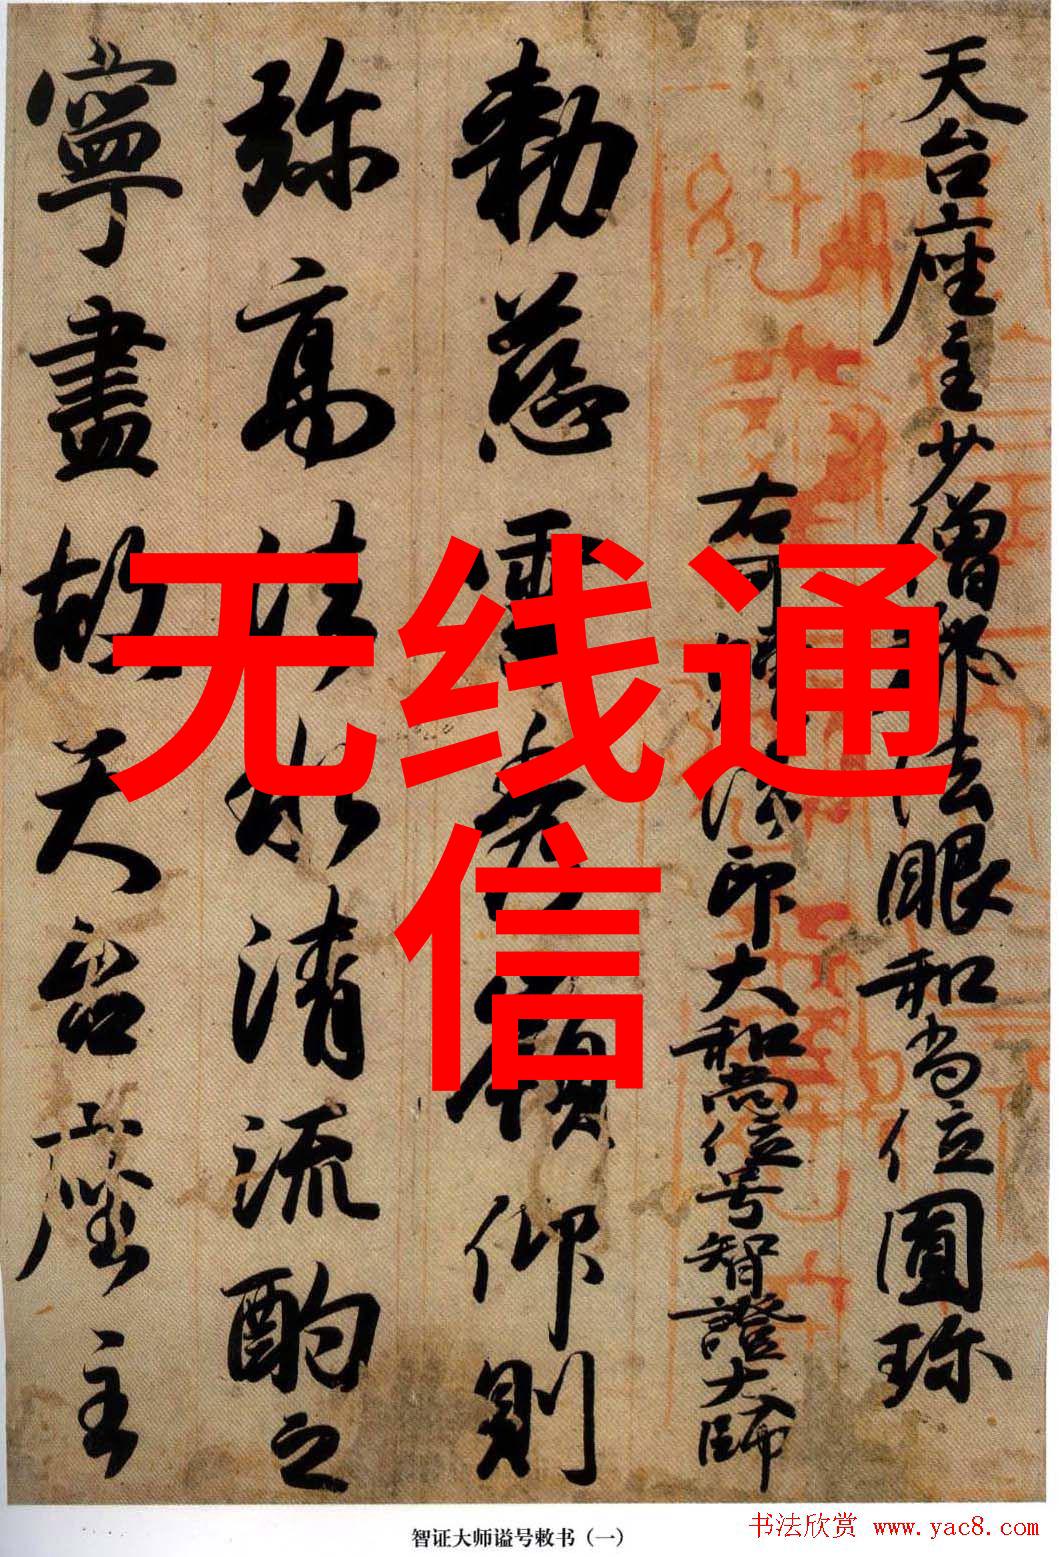 天台座主少僧都法眼和尚位圓珎
右可贈法印大和尚位号智證大師
勅慈雲秀嶺仰則
弥高法水清流酌之
寧盡故天台座主
无线通
信
智证大师谥号敕书（一）
书法欣赏 www.yac8.com